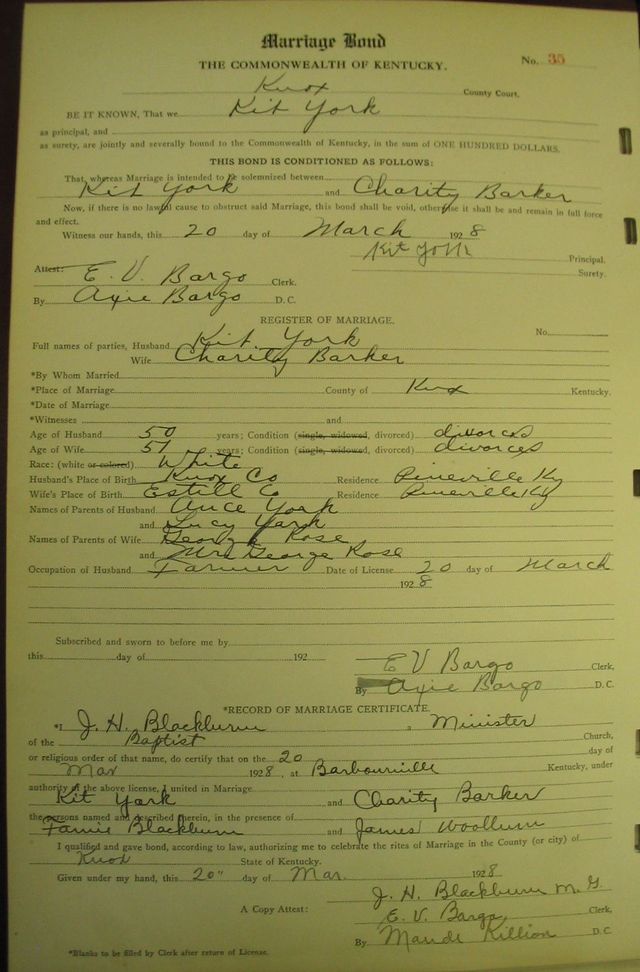 Marriage Bond
THE COMMONWEALTH OF KENTUCKY. No. 35
Knox County Court.
BE IT KNOWN, That we Kit York
as principal, and
as surety, are jointly and severally bound to the Commonwealth of Kentucky, in the sum of ONE HUNDRED DOLLARS.
THIS BOND IS CONDITIONED AS FOLLOWS:
That, whereas Marriage is intended to be solemnized between
Kit York and Charity Barker
Now, if there is no lawful cause to obstruct said Marriage, this bond shall be void, otherwise it shall be and remain in full force
and effect.
Witness our hands, this 20 day of March 1928
Kit York Principal.
Attest: E. V. Bargo Clerk. Surety.
By Axie Bargo D. C.
REGISTER OF MARRIAGE.
Full names of parties, Husband Kit York No.
Wife Charity Barker
*By Whom Married
*Place of Marriage County of Knox Kentucky.
*Date of Marriage
*Witnesses and
Age of Husband 50 years; Condition (single, widowed, divorced) divorced
Age of Wife 51 years; Condition (single, widowed, divorced) divorced
Race: (white or colored) White
Husband's Place of Birth Knox Co Residence Pineville Ky
Wife's Place of Birth Estill Co Residence Pineville Ky
Names of Parents of Husband York
and Lucy York
Names of Parents of Wife George Rose
and Mrs George Rose
Occupation of Husband Farmer Date of License 20 day of March
1928
Subscribed and sworn to before me by
this day of 192
E V Bargo Clerk,
By Axie Bargo D. C.
*RECORD OF MARRIAGE CERTIFICATE.
*I J. H. Blackburn, a Minister
of the Baptist Church,
or religious order of that name, do certify that on the 20 day of
Mar 1928, at Barbourville Kentucky, under
authority of the above license, I united in Marriage
Kit York and Charity Barker
the persons named and described therein, in the presence of
Blackburn and James Woollum
I qualified and gave bond, according to law, authorizing me to celebrate the rites of Marriage in the County (or city) of
Knox State of Kentucky.
Given under my hand, this 20" day of Mar. 1928
J. H. Blackburn M. G.
A Copy Attest: E. V. Bargo, Clerk,
By Maude Killion D. C.
*Blanks to be filled by Clerk after return of License.